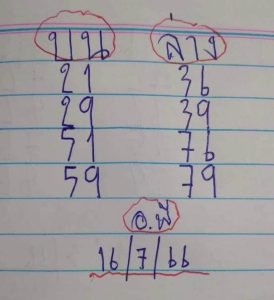 ล่าง
21 36
29 39
51 76
59 79
อ.พี
16/7/66